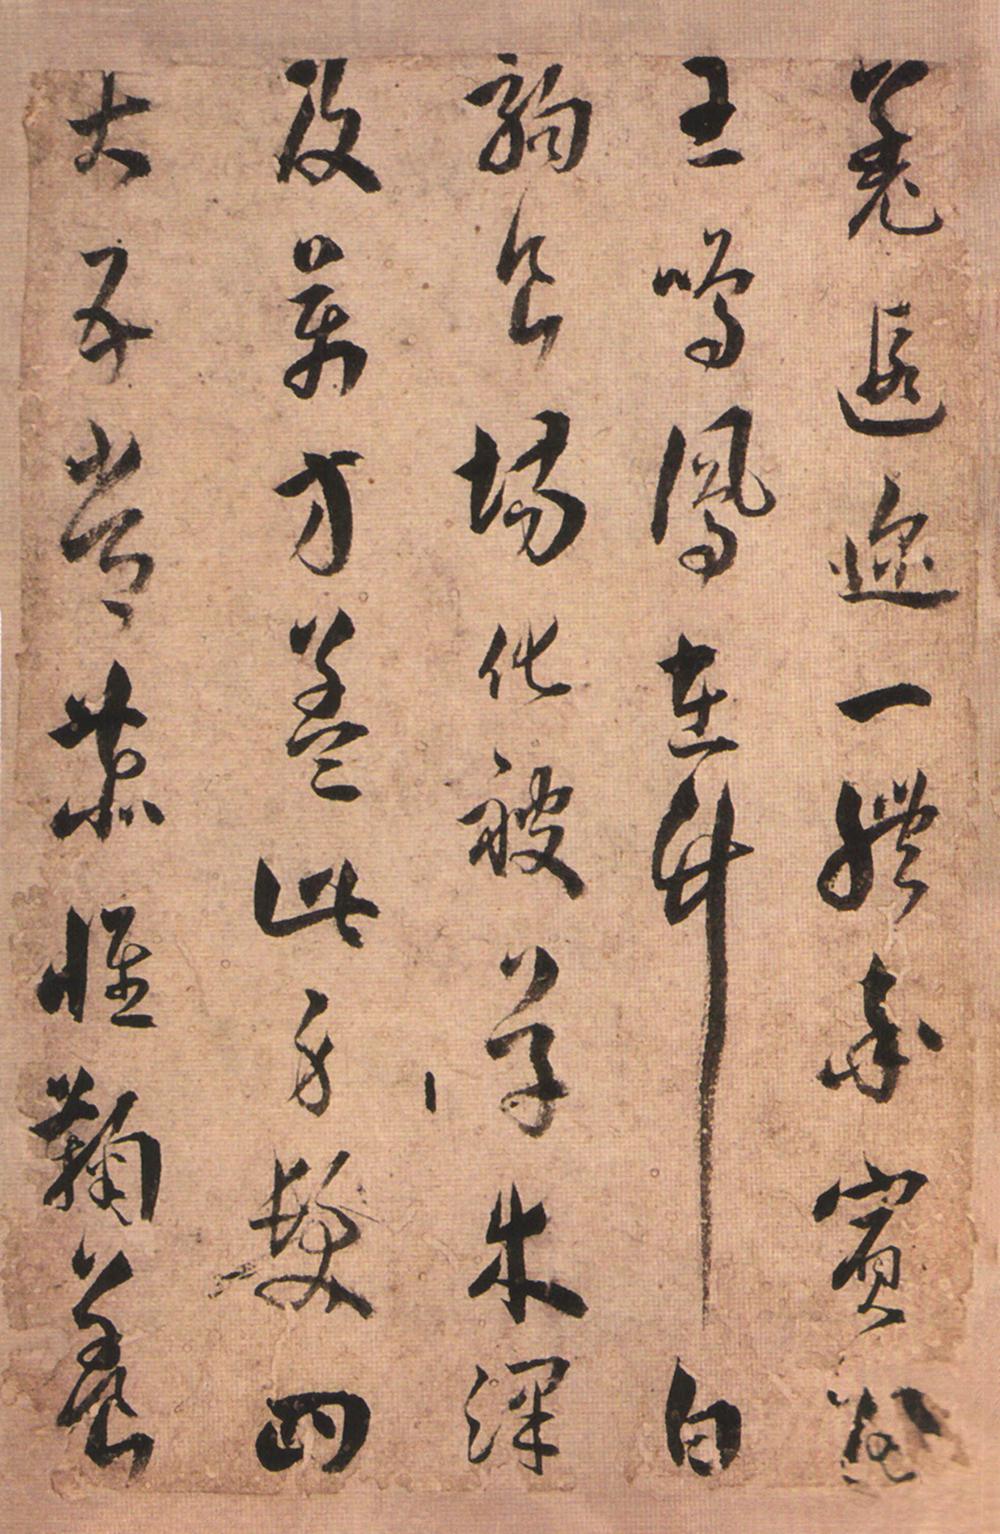 羌遐迩一體率賓歸
王鳴鳳在樹白
駒食場化被草木深
及萬方盖此身髮四
大五常恭惟鞠養